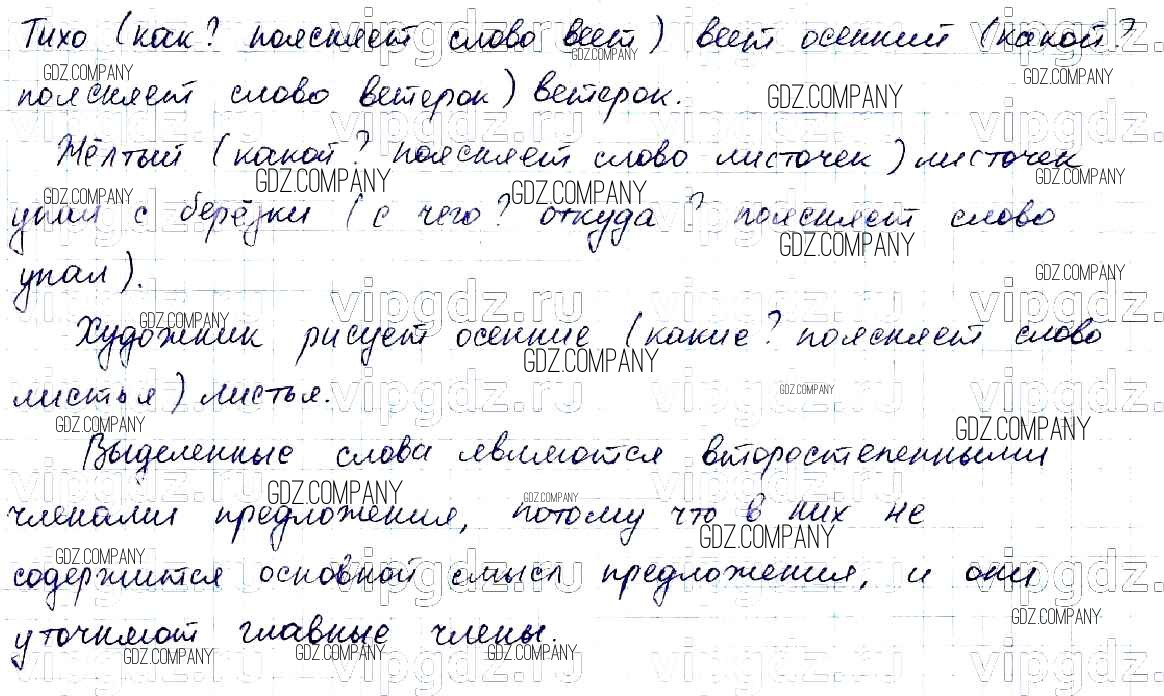 Тихо (как? поясняет слово веет) веет осенний (какой?
поясняет слово ветерок) ветерок.
Жёлтый (какой? поясняет слово листочек) листочек
упал с берёзки (с чего? откуда? поясняет слово
упал).
Художник рисует осенние (какие? поясняет слово
листья) листья.
Выделенные слова являются второстепенными
членами предложения, потому что в них не
содержится основной смысл предложения, и они
уточняют главные члены.
vipgdz.ru
GDZ.COMPANY